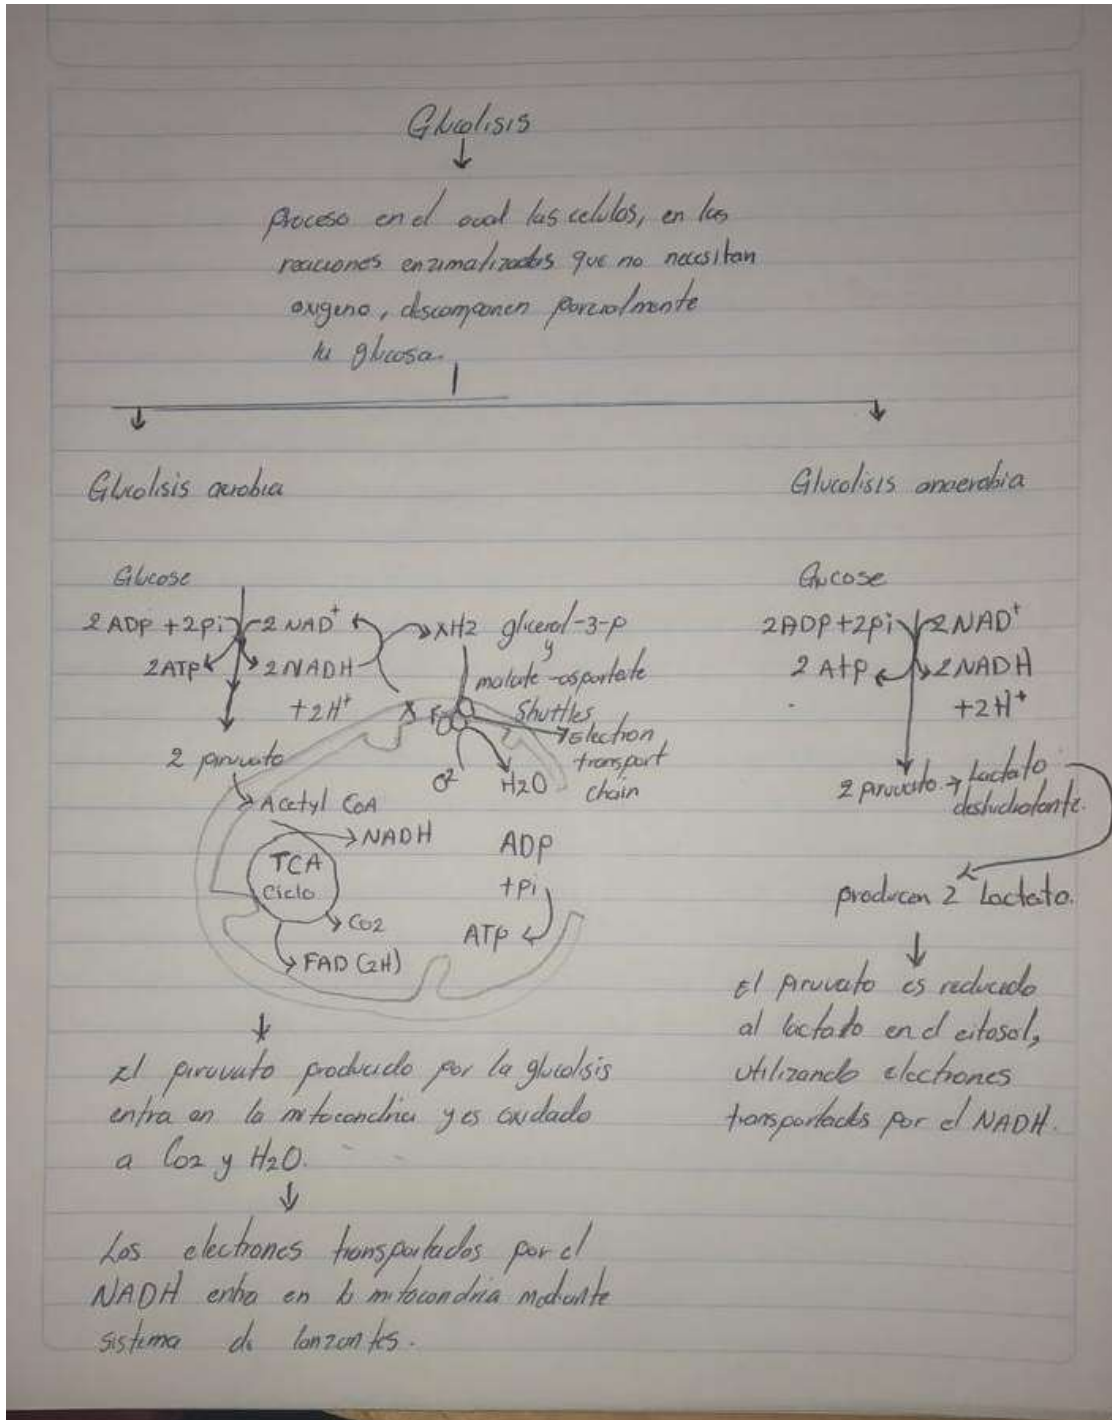 Glucolisis
proceso en el cual las celulas, en las
reacciones enzimalizadas que no necesitan
oxigeno, descomponen parcialmente
la glucosa.
Glucolisis aerobia
Glucolisis anaerobia
Glucose
2 ADP + 2Pi 2 NAD+
2ATP 2 NADH
+2H+
2 piruvato
XH2 glicerol-3-p
y
malate-aspartate
shuttles
X
Electron
transport
chain
O2 H2O
Acetyl CoA
NADH
TCA
Ciclo
CO2
FAD (2H)
ADP
+Pi
ATP
El piruvato producido por la glucolisis
entra en la mitocondria y es oxidado
a CO2 y H2O.
Los electrones transportados por el
NADH entra en la mitocondria mediante
sistema de lanzantes.
Gucose
2ADP+2Pi 2NAD+
2 Atp 2NADH
+2H+
2 piruvato Lactato
deshidratante.
producen 2 Lactato.
El Piruvato es reducido
al lactato en el citosol,
utilizando electrones
transportados por el NADH.